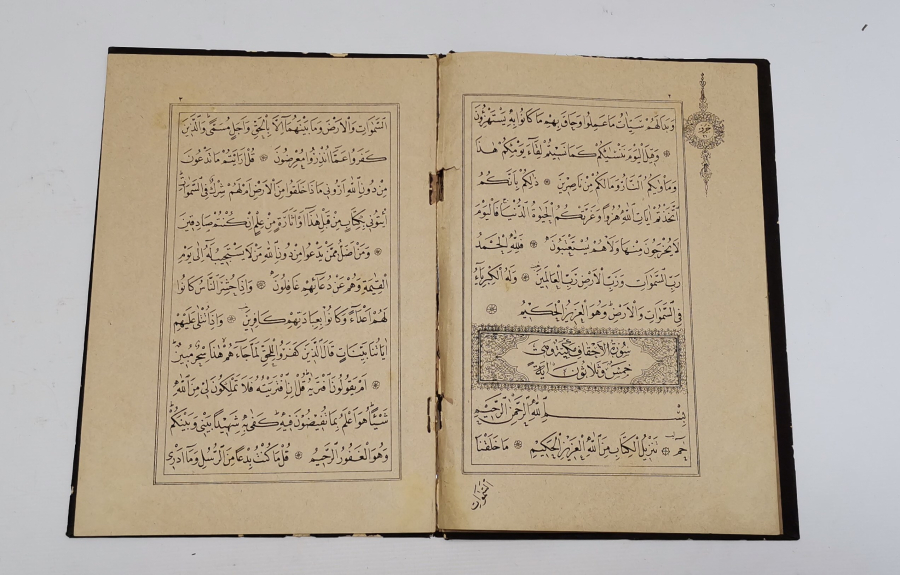 ٢
جزء
وَبَدَا لَهُمْ سَيِّئَاتُ مَا عَمِلُوا وَحَاقَ بِهِمْ مَا كَانُوا بِهِ يَسْتَهْزِؤُنَ
وَقِيلَ الْيَوْمَ نَنْسٰيكُمْ كَمَا نَسِيتُمْ لِقَاءَ يَوْمِكُمْ هٰذَا
وَمَاْوٰيكُمُ النَّارُ وَمَا لَكُمْ مِنْ نَاصِرِينَ ذٰلِكُمْ بِاَنَّكُمُ
اتَّخَذْتُمْ اٰيَاتِ اللّٰهِ هُزُوًا وَغَرَّتْكُمُ الْحَيٰوةُ الدُّنْيَا فَالْيَوْمَ
لَا يُخْرَجُونَ مِنْهَا وَلَا هُمْ يُسْتَعْتَبُونَ فَلِلّٰهِ الْحَمْدُ
رَبِّ السَّمٰوَاتِ وَرَبِّ الْاَرْضِ رَبِّ الْعَالَمِينَ وَلَهُ الْكِبْرِيَاءُ
فِي السَّمٰوَاتِ وَالْاَرْضِ وَهُوَ الْعَزِيزُ الْحَكِيمُ
سُورَةُ الْاَحْقَافِ مَكِّيَّةٌ وَهِيَ
خَمْسٌ وَثَلَاثُونَ اٰيَةً
بِسْمِ اللّٰهِ الرَّحْمٰنِ الرَّحِيمِ
حٰمٓ تَنْزِيلُ الْكِتَابِ مِنَ اللّٰهِ الْعَزِيزِ الْحَكِيمِ مَا خَلَقْنَا
السَّمٰوَاتِ
٣
السَّمٰوَاتِ وَالْاَرْضَ وَمَا بَيْنَهُمَا اِلَّا بِالْحَقِّ وَاَجَلٍ مُسَمًّى وَالَّذِينَ
كَفَرُوا عَمَّا اُنْذِرُوا مُعْرِضُونَ قُلْ اَرَاَيْتُمْ مَا تَدْعُونَ
مِنْ دُونِ اللّٰهِ اَرُونِي مَاذَا خَلَقُوا مِنَ الْاَرْضِ اَمْ لَهُمْ شِرْكٌ فِي السَّمٰوَاتِ
اِيتُونِي بِكِتَابٍ مِنْ قَبْلِ هٰذَا اَوْ اَثَارَةٍ مِنْ عِلْمٍ اِنْ كُنْتُمْ صَادِقِينَ
وَمَنْ اَضَلُّ مِمَّنْ يَدْعُوا مِنْ دُونِ اللّٰهِ مَنْ لَا يَسْتَجِيبُ لَهُ اِلٰى يَوْمِ
الْقِيٰمَةِ وَهُمْ عَنْ دُعَائِهِمْ غَافِلُونَ وَاِذَا حُشِرَ النَّاسُ كَانُوا
لَهُمْ اَعْدَاءً وَكَانُوا بِعِبَادَتِهِمْ كَافِرِينَ وَاِذَا تُتْلٰى عَلَيْهِمْ
اٰيَاتُنَا بَيِّنَاتٍ قَالَ الَّذِينَ كَفَرُوا لِلْحَقِّ لَمَّا جَاءَهُمْ هٰذَا سِحْرٌ مُبِينٌ
اَمْ يَقُولُونَ افْتَرٰيهُ قُلْ اِنِ افْتَرَيْتُهُ فَلَا تَمْلِكُونَ لِي مِنَ اللّٰهِ
شَيْئًا هُوَ اَعْلَمُ بِمَا تُفِيضُونَ فِيهِ كَفٰى بِهِ شَهِيدًا بَيْنِي وَبَيْنَكُمْ
وَهُوَ الْغَفُورُ الرَّحِيمُ قُلْ مَا كُنْتُ بِدْعًا مِنَ الرُّسُلِ وَمَا اَدْرِي